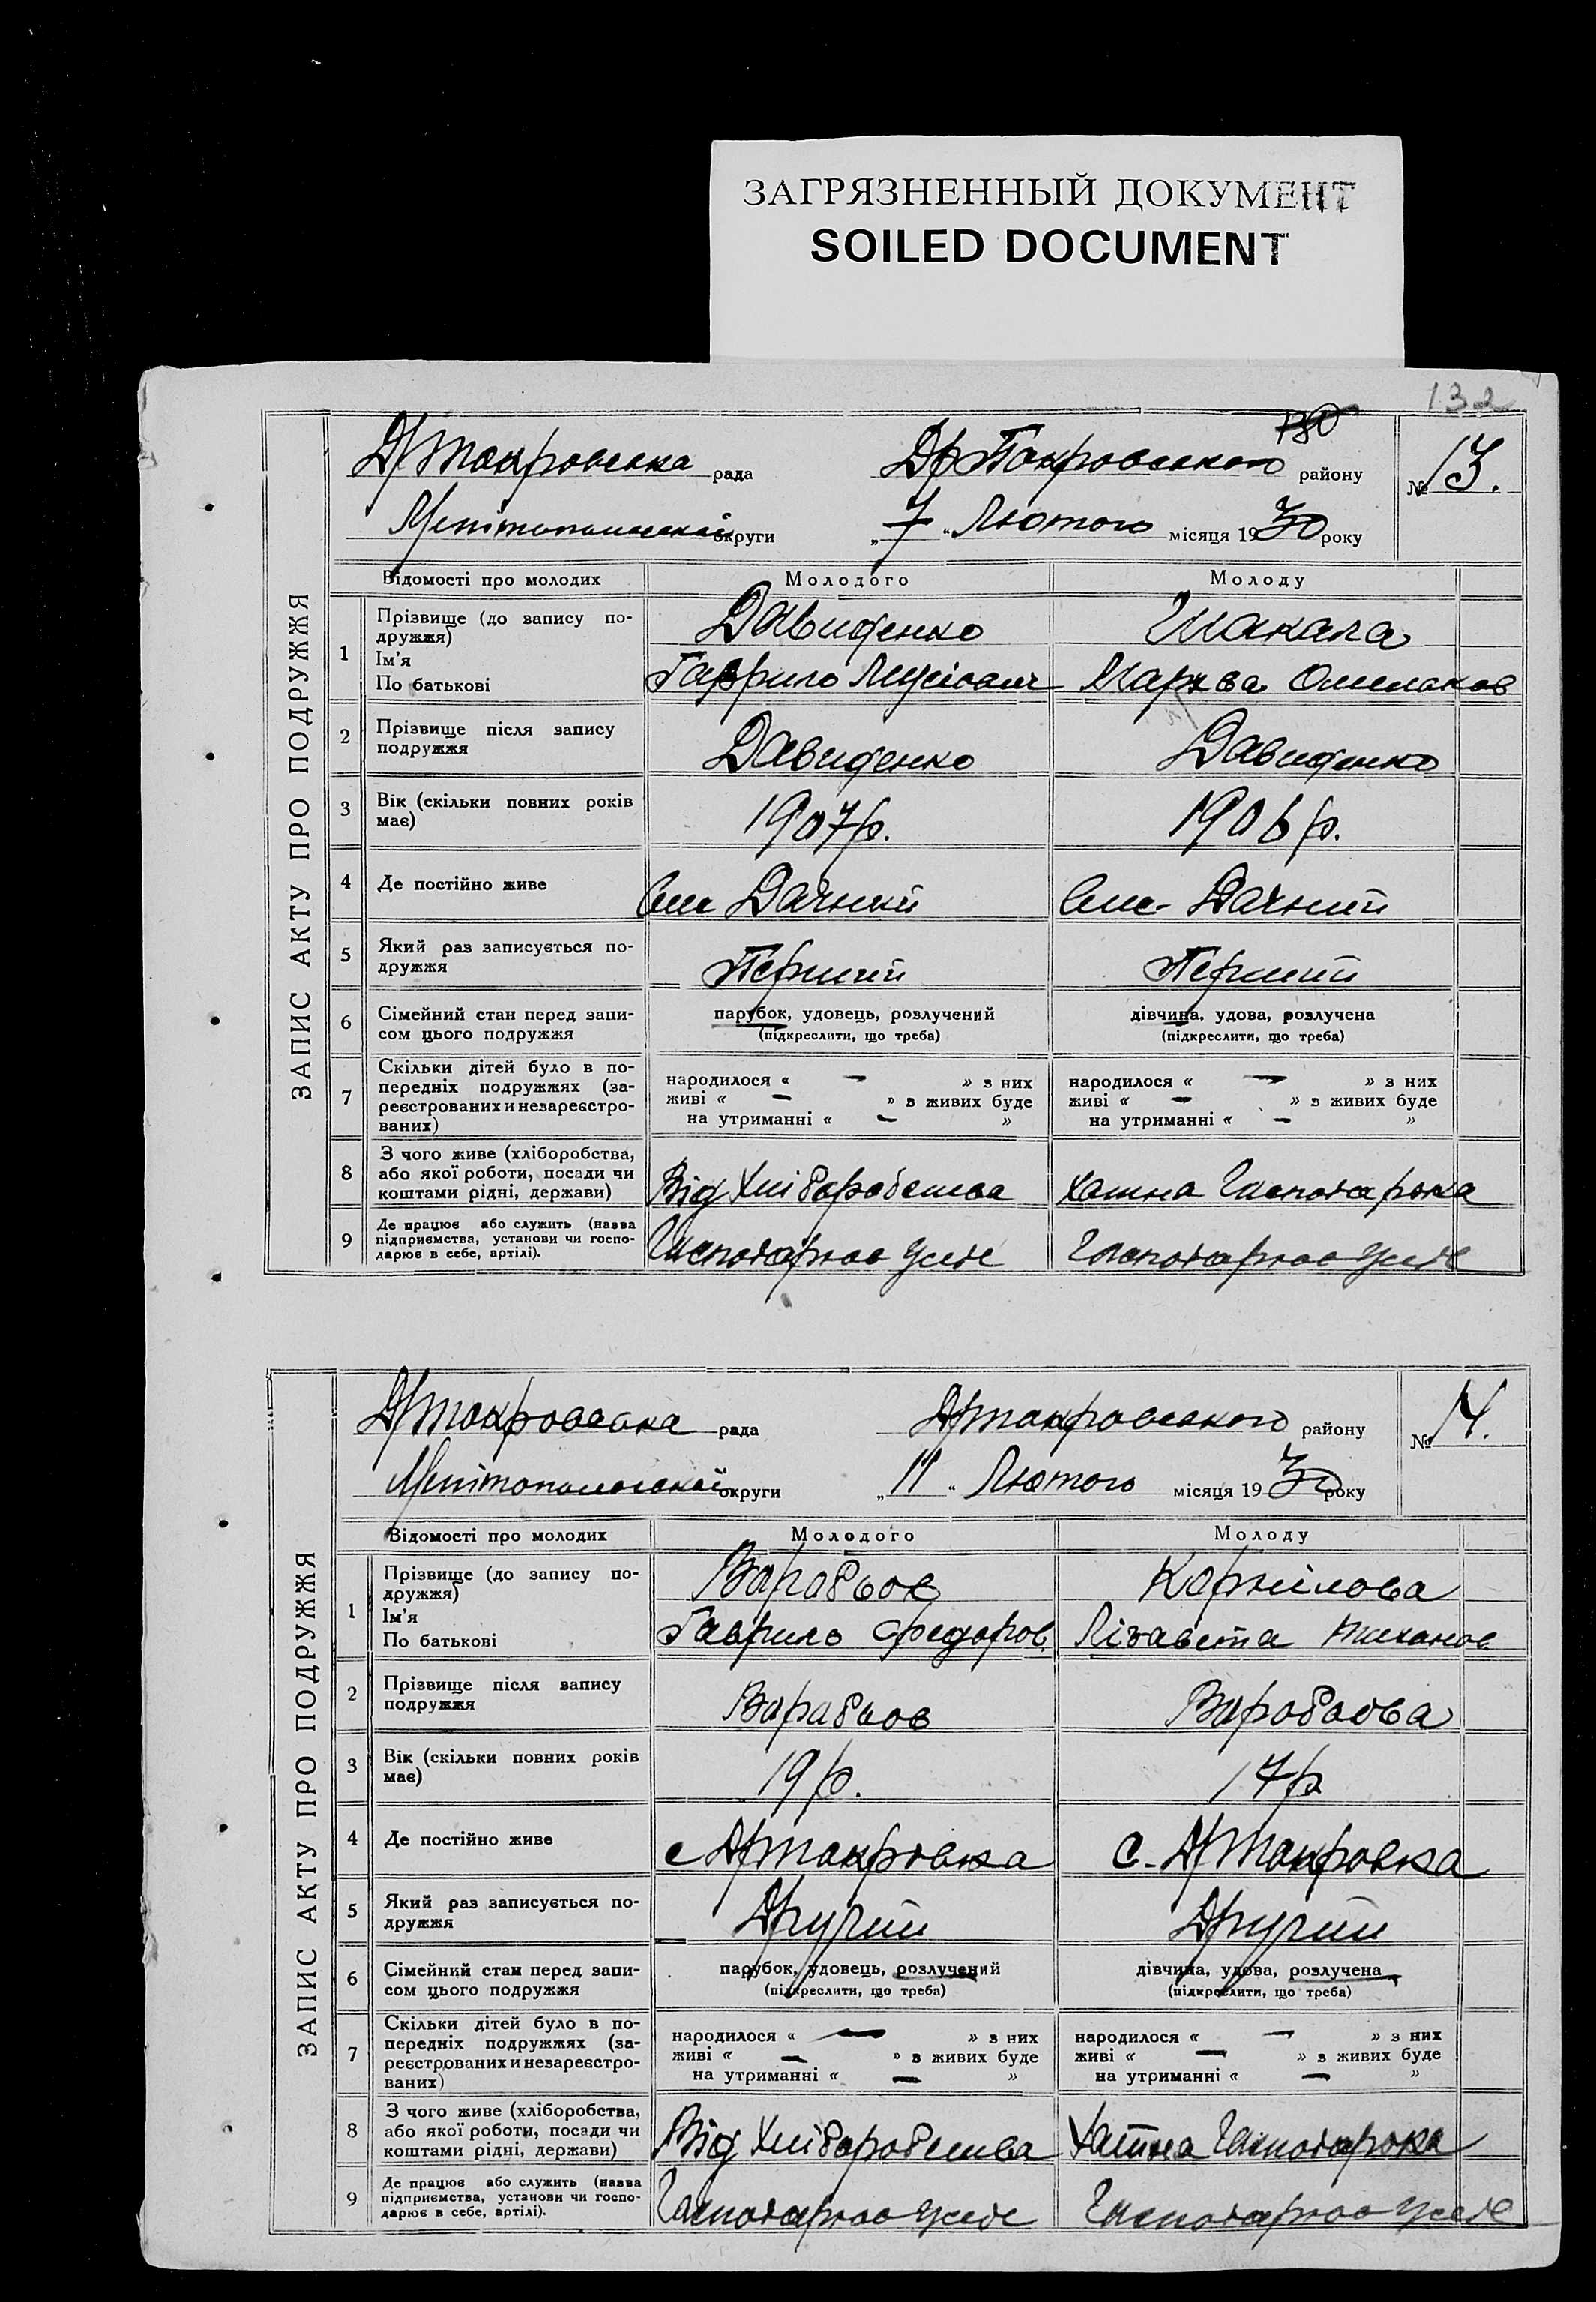 ЗАГРЯЗНЕННЫЙ ДОКУМЕНТ
SOILED DOCUMENT
132
130
ЗАПИС АКТУ ПРО ПОДРУЖЖЯ
Др Покровського району
№ 13.
рада
округи
„7“ Лютого місяця 1930 року
Відомості про молодих Молодого Молоду
1 Прізвище (до запису по-
дружжя)
Ім'я
По батькові
Давиденко Шакала
Гаврило
2 Прізвище після запису
подружжя
Давиденко Давиденко
3 Вік (скільки повних років
має)
1907р. 1906р.
4 Де постійно живе
Дачний Дачний
5 Який раз записується по-
дружжя
Перший Перший
6 Сімейний стан перед запи-
сом цього подружжя
парубок, удовець, розлучений дівчина, удова, розлучена
(підкреслити, що треба) (підкреслити, що треба)
7 Скільки дітей було в по-
передніх подружжях (за-
реєстрованих и незареєстро-
ваних)
народилося « — » з них народилося « — » з них
живі « — » з живих буде живі « — » з живих буде
на утриманні « — » на утриманні « — »
8 З чого живе (хліборобства,
або якої роботи, посади чи
коштами рідні, держави)
Від Хліборобства Хатна
9 Де працює або служить (назва
підприємства, установи чи госпо-
дарює в себе, артілі).
ЗАПИС АКТУ ПРО ПОДРУЖЖЯ
рада району
№ 14.
округи
„11“ Лютого місяця 1930 року
Відомості про молодих Молодого Молоду
1 Прізвище (до запису по-
дружжя)
Ім'я
По батькові
Корнілова
Гаврило Федоров. Лізавета Тиханов.
2 Прізвище після запису
подружжя
3 Вік (скільки повних років
має)
19р. 17р
4 Де постійно живе
5 Який раз записується по-
дружжя
Другий Другий
6 Сімейний стан перед запи-
сом цього подружжя
парубок, удовець, розлучений дівчина, удова, розлучена
(підкреслити, що треба) (підкреслити, що треба)
7 Скільки дітей було в по-
передніх подружжях (за-
реєстрованих и незареєстро-
ваних)
народилося « — » з них народилося « — » з них
живі « — » з живих буде живі « — » з живих буде
на утриманні « — » на утриманні « — »
8 З чого живе (хліборобства,
або якої роботи, посади чи
коштами рідні, держави)
Від Хліборобства Хатна
9 Де працює або служить (назва
підприємства, установи чи госпо-
дарює в себе, артілі).